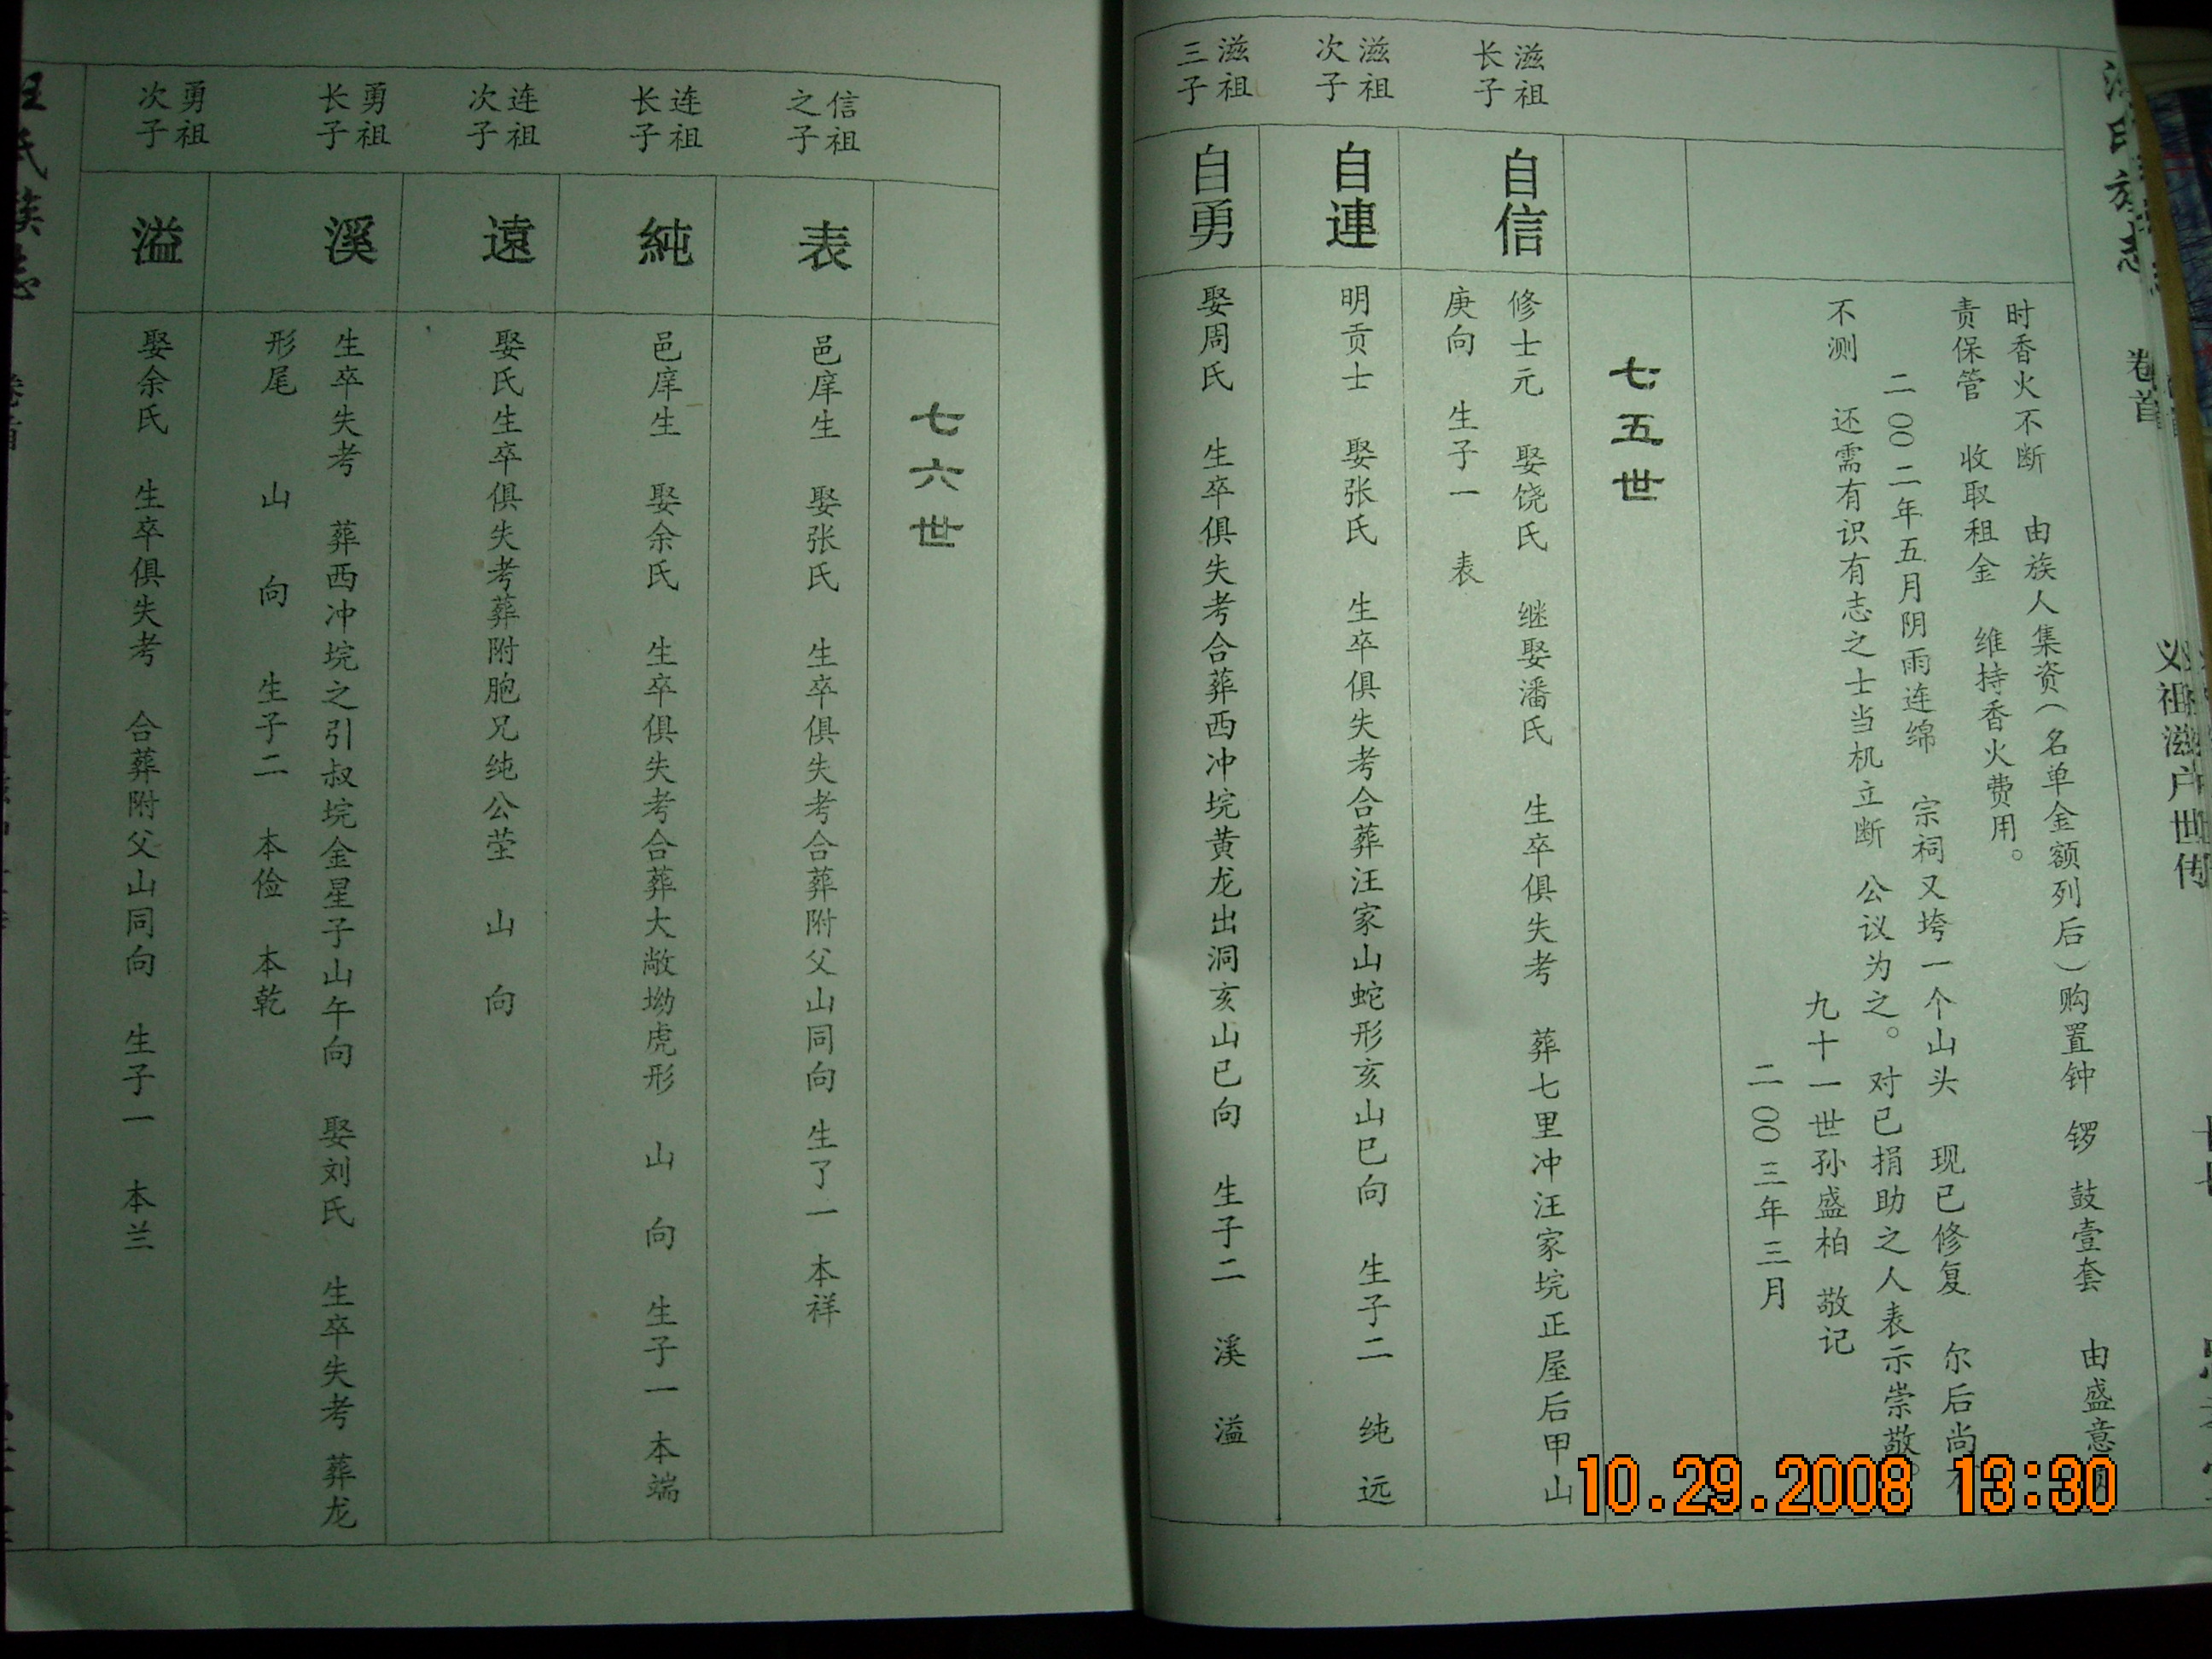 卷首
义祖滋户世传
时香火不断 由族人集资(名单金额列后)购置钟 锣 鼓壹套 由盛意
责保管 收取租金 维持香火费用。
二00二年五月阴雨连绵 宗祠又垮一个山头 现已修复 尔后尚不
不测 还需有识有志之士当机立断 公议为之。对已捐助之人表示崇敬。
九十一世孙盛柏 敬记
二00三年三月
七五世
滋祖
长子
自信
修士元 娶饶氏 继娶潘氏 生卒俱失考 葬七里冲汪家垸正屋后甲山
庚向 生子一 表
滋祖
次子
自連
明贡士 娶张氏 生卒俱失考合葬汪家山蛇形亥山巳向 生子二 纯 远
滋祖
三子
自勇
娶周氏 生卒俱失考合葬西冲垸黄龙出洞亥山已向 生子二 溪 溢
七六世
信祖
之子
表
邑庠生 娶张氏 生卒俱失考合葬附父山同向 生了一 本祥
连祖
长子
純
邑庠生 娶余氏 生卒俱失考合葬大敞坳虎形 山 向 生子一 本端
连祖
次子
遠
娶氏生卒俱失考葬附胞兄纯公茔 山 向
勇祖
长子
溪
生卒失考 葬西冲垸之引叔垸金星子山午向 娶刘氏 生卒失考 葬龙
形尾 山 向 生子二 本俭 本乾
勇祖
次子
溢
娶余氏 生卒俱失考 合葬附父山同向 生子一 本兰
汪氏族志
10.29.2008 13:30